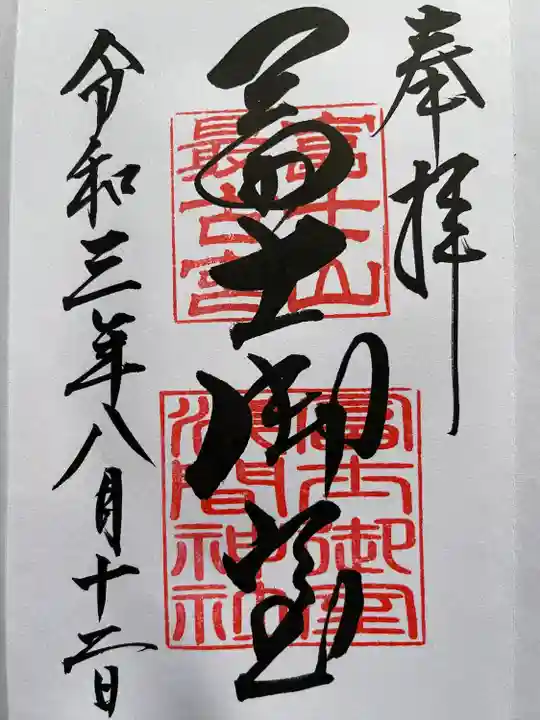 奉拝
富士御室
富士山
最古宮
冨士御室
浅間神社
令和三年八月十二日